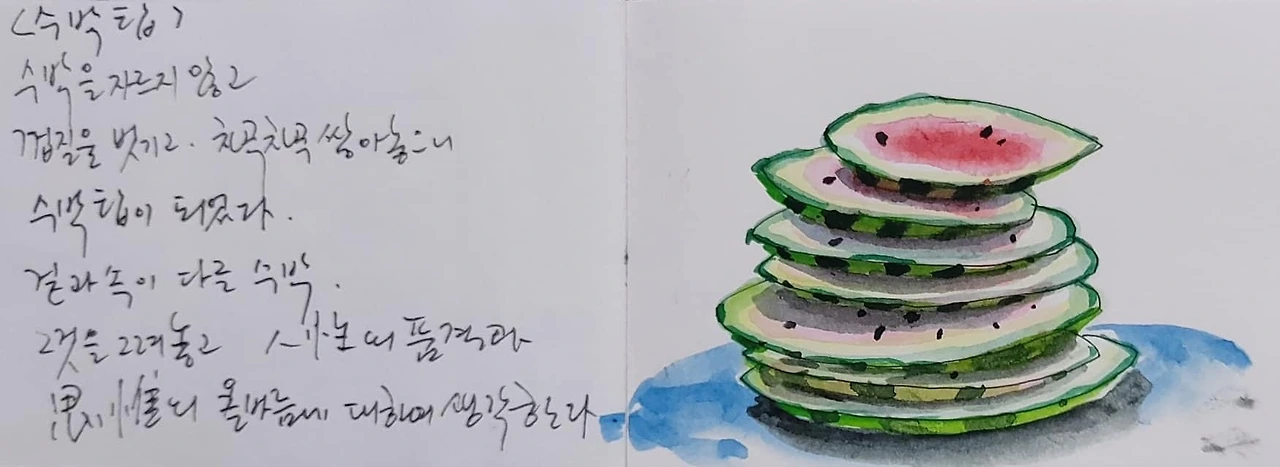 <수박 탑>
수박을 자르지 않고
껍질을 벗기고. 차곡차곡 쌓아놓으니
수박탑이 되었다.
겉과 속이 다른 수박.
그것을 그려놓고 人性의 품격과
思惟의 올바름에 대하여 생각한다